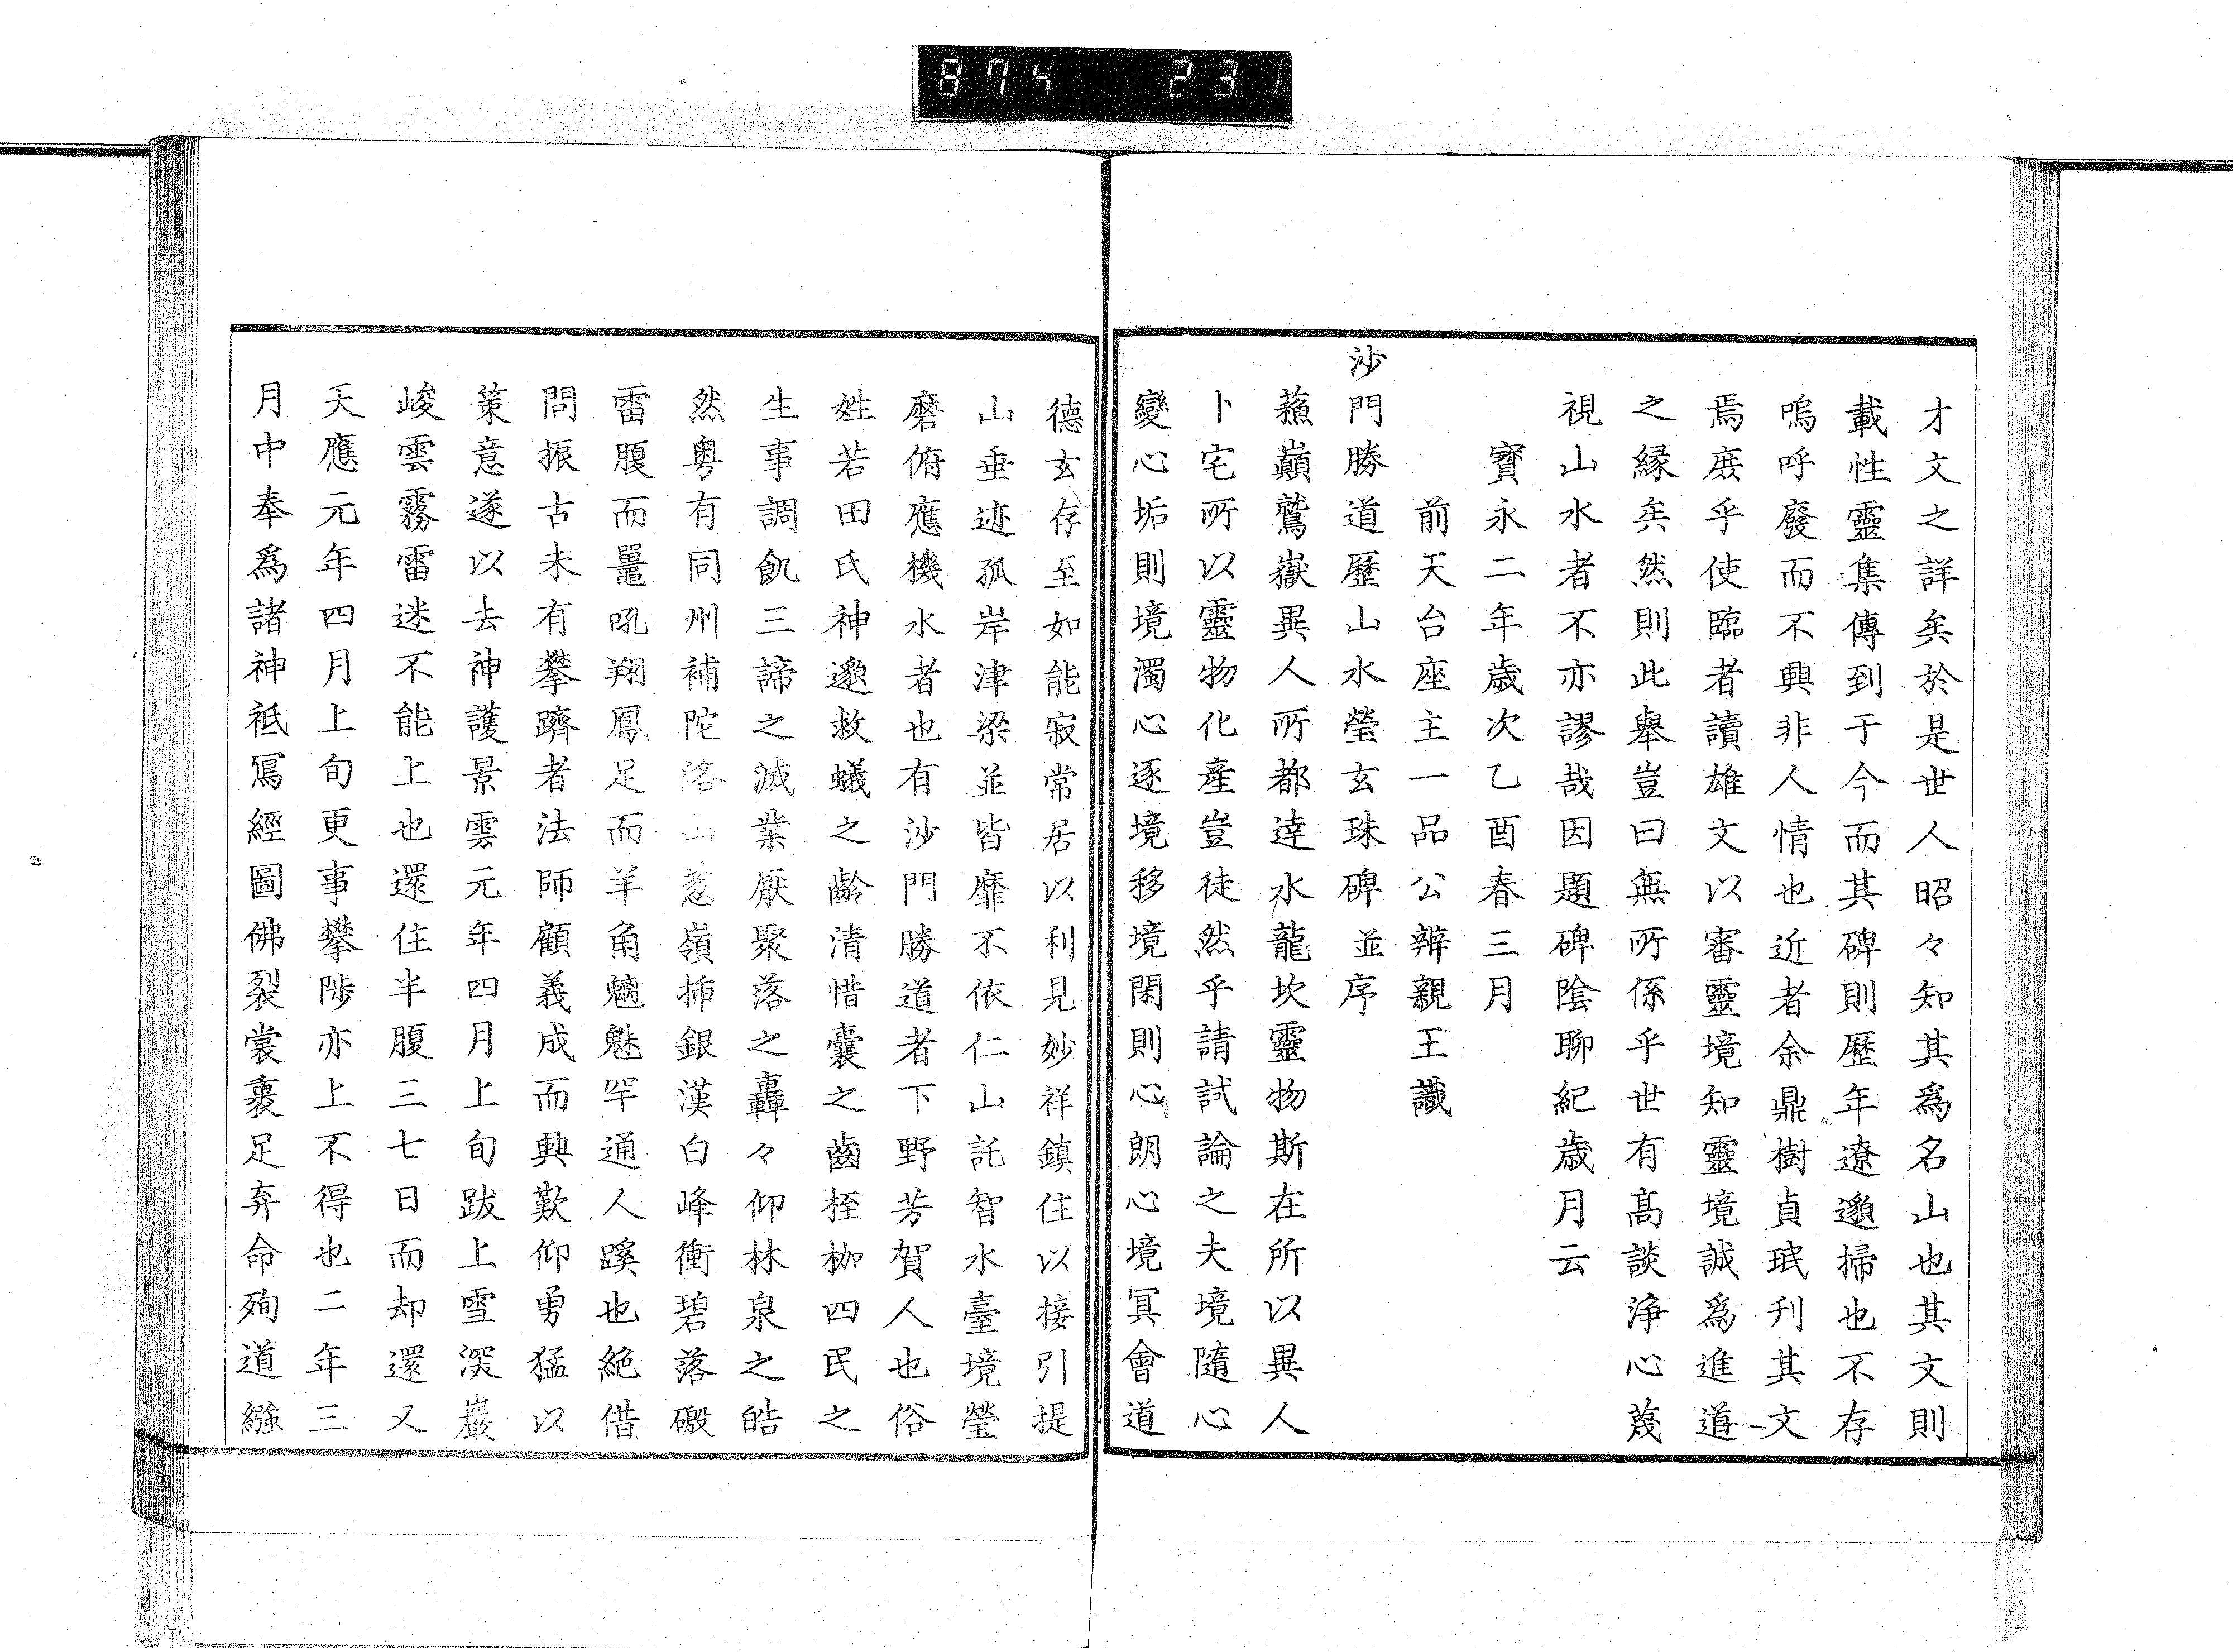 874 231
才文之詳矣於是世人昭々知其爲名山也其文則
載性靈集傳到于今而其碑則歷年遼邈掃也不存
嗚呼廢而不興非人情也近者余鼎樹貞珉刋其文
焉庶乎使臨者讀雄文以審靈境知靈境誠爲進道
之縁矣然則此舉豈曰無所係乎世有髙談浄心蔑
視山水者不亦謬哉因題碑陰聊紀歳月云
寳永二年歳次乙酉春三月
前天台座主一品公辨親王識
沙門勝道歷山水瑩玄珠碑並序
蘓巔鷲嶽異人所都達水龍坎靈物斯在所以異人
卜宅所以靈物化産豈徒然乎請試論之夫境隨心
變心垢則境濁心逐境移境閑則心朗心境冥會道
德玄存至如能寂常居以利見妙祥鎮住以接引提
山垂迹孤岸津梁並皆靡不依仁山託智水臺境瑩
磨俯應機水者也有沙門勝道者下野芳賀人也俗
姓若田氏神邈救蟻之齡清惜囊之齒桎枷四民之
生事調飢三諦之滅業厭聚落之轟々仰林泉之皓
然粤有同州補陀洛山葱嶺揷銀漢白峰衝碧落磤
雷腹而鼉吼翔鳳足而羊角魑魅罕通人蹊也絶借
問振古未有攀躋者法師顧義成而興歎仰勇猛以
策意遂以去神護景雲元年四月上旬跋上雪深巖
峻雲霧雷迷不能上也還住半腹三七日而却還又
天應元年四月上旬更事攀陟亦上不得也二年三
月中奉爲諸神祇冩經圖佛裂裳裹足弃命殉道繈